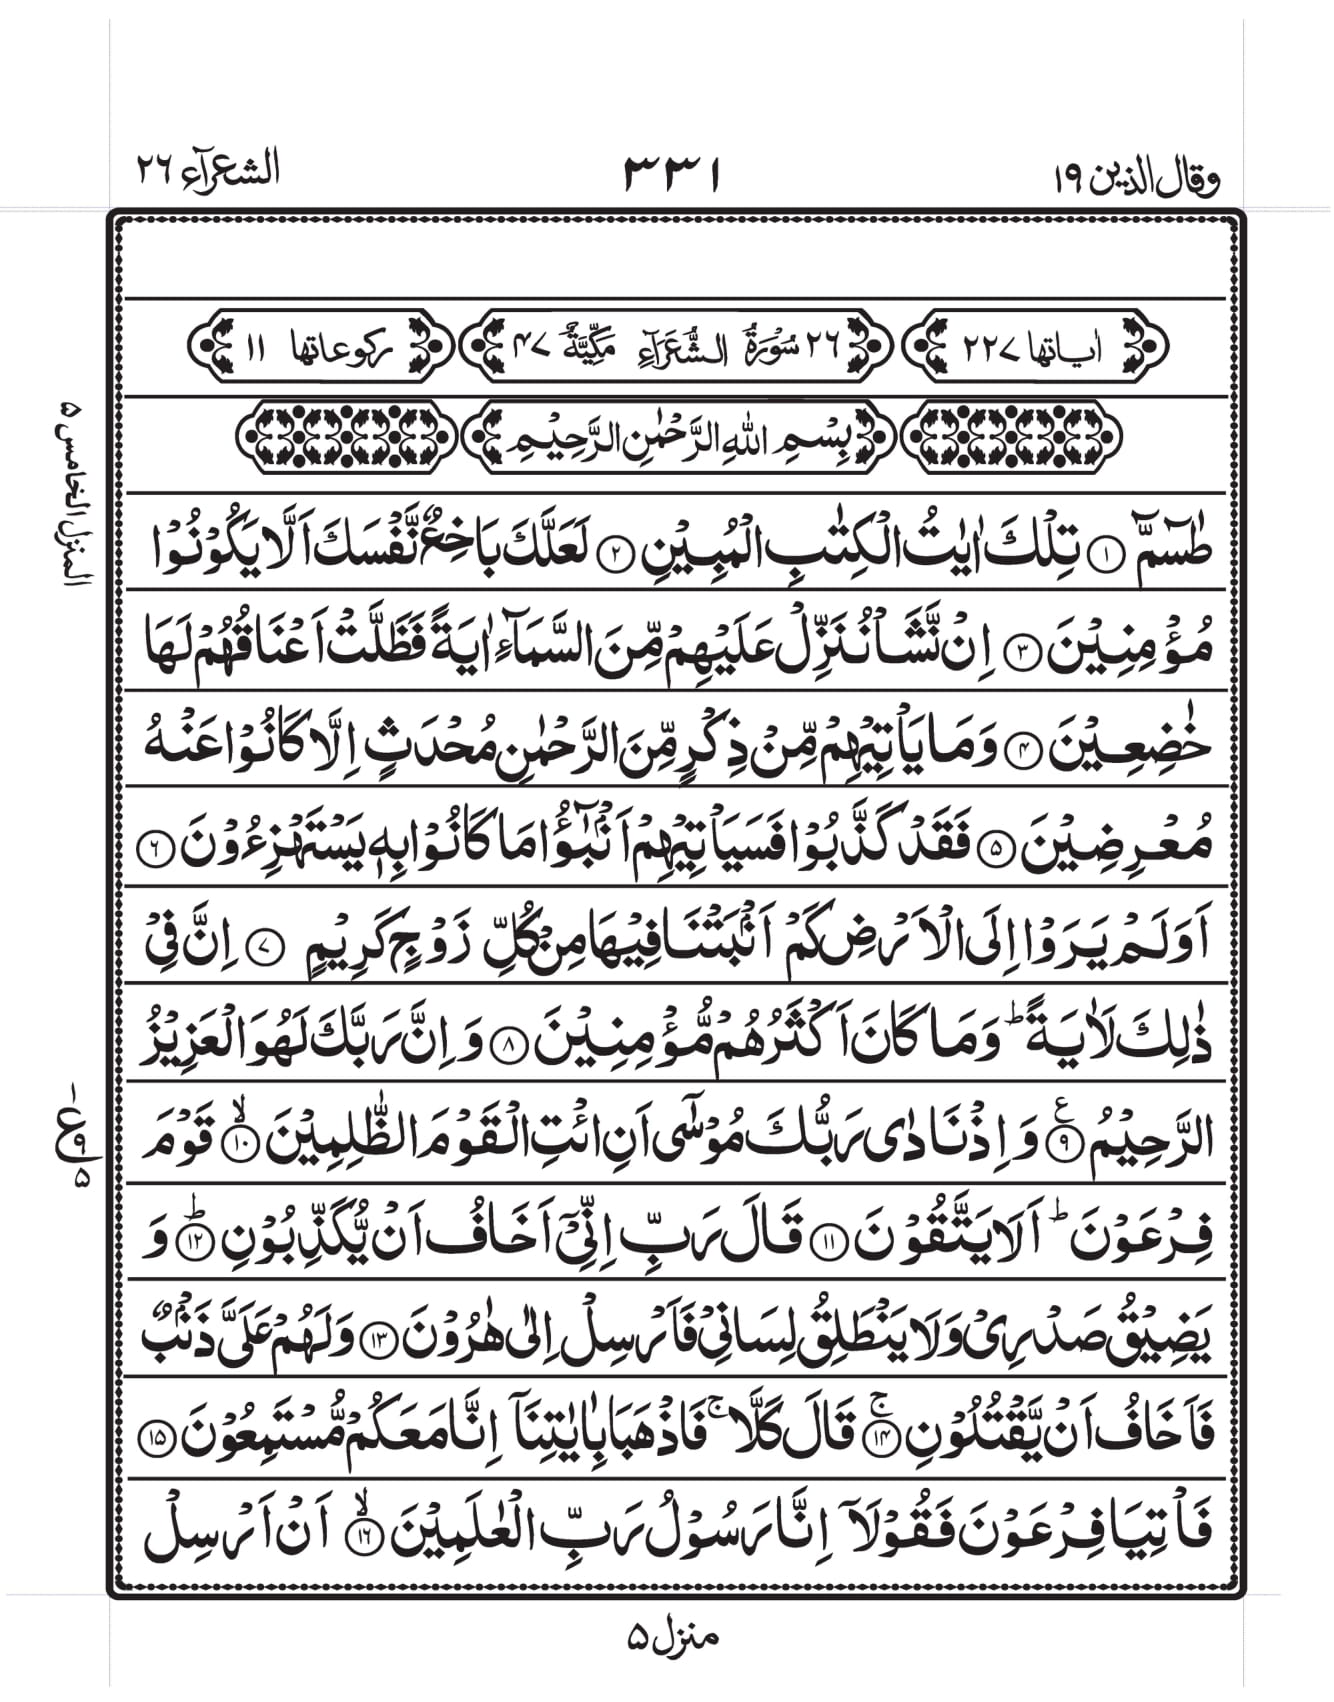 وقال الذين ١٩
٣٣١
الشعرآء ٢٦
اٰياتها ٢٢٧
٢٦ سُوْرَةُ الشُّعَرَآءِ مَكِّيَّةٌ ٤٧
ركوعاتها ١١
بِسْمِ اللّٰهِ الرَّحْمٰنِ الرَّحِيْمِ
المنزل الخامس ۵
طٰسٓمّٓ ﴿١﴾ تِلْكَ اٰيٰتُ الْكِتٰبِ الْمُبِيْنِ ﴿٢﴾ لَعَلَّكَ بَاخِعٌ نَّفْسَكَ اَلَّا يَكُوْنُوْا
مُؤْمِنِيْنَ ﴿٣﴾ اِنْ نَّشَاْ نُنَزِّلْ عَلَيْهِمْ مِّنَ السَّمَآءِ اٰيَةً فَظَلَّتْ اَعْنَاقُهُمْ لَهَا
خٰضِعِيْنَ ﴿۴﴾ وَمَا يَاْتِيْهِمْ مِّنْ ذِكْرٍ مِّنَ الرَّحْمٰنِ مُحْدَثٍ اِلَّا كَانُوْا عَنْهُ
مُعْرِضِيْنَ ﴿۵﴾ فَقَدْ كَذَّبُوْا فَسَيَاْتِيْهِمْ اَنْۢبٰٓؤُا مَا كَانُوْا بِهٖ يَسْتَهْزِءُوْنَ ﴿٦﴾
اَوَلَمْ يَرَوْا اِلَى الْاَرْضِ كَمْ اَنْۢبَتْنَا فِيْهَا مِنْ كُلِّ زَوْجٍ كَرِيْمٍ ﴿٧﴾ اِنَّ فِيْ
ذٰلِكَ لَاٰيَةً ؕ وَمَا كَانَ اَكْثَرُهُمْ مُّؤْمِنِيْنَ ﴿٨﴾ وَاِنَّ رَبَّكَ لَهُوَ الْعَزِيْزُ
الرَّحِيْمُ ﴿٩﴾ ع وَاِذْ نَادٰى رَبُّكَ مُوْسٰٓى اَنِ ائْتِ الْقَوْمَ الظّٰلِمِيْنَ ﴿١٠﴾ ۙ قَوْمَ
ع ٩ ۵
فِرْعَوْنَ ؕ اَلَا يَتَّقُوْنَ ﴿١١﴾ قَالَ رَبِّ اِنِّيْۤ اَخَافُ اَنْ يُّكَذِّبُوْنِ ﴿١٢﴾ ؕ وَ
يَضِيْقُ صَدْرِيْ وَلَا يَنْطَلِقُ لِسَانِيْ فَاَرْسِلْ اِلٰى هٰرُوْنَ ﴿١٣﴾ وَلَهُمْ عَلَيَّ ذَنْۢبٌ
فَاَخَافُ اَنْ يَّقْتُلُوْنِ ﴿١۴﴾ ۚ قَالَ كَلَّا ۚ فَاذْهَبَا بِاٰيٰتِنَاۤ اِنَّا مَعَكُمْ مُّسْتَمِعُوْنَ ﴿١۵﴾
فَاْتِيَا فِرْعَوْنَ فَقُوْلَاۤ اِنَّا رَسُوْلُ رَبِّ الْعٰلَمِيْنَ ﴿١٦﴾ ۙ اَنْ اَرْسِلْ
منزل ۵